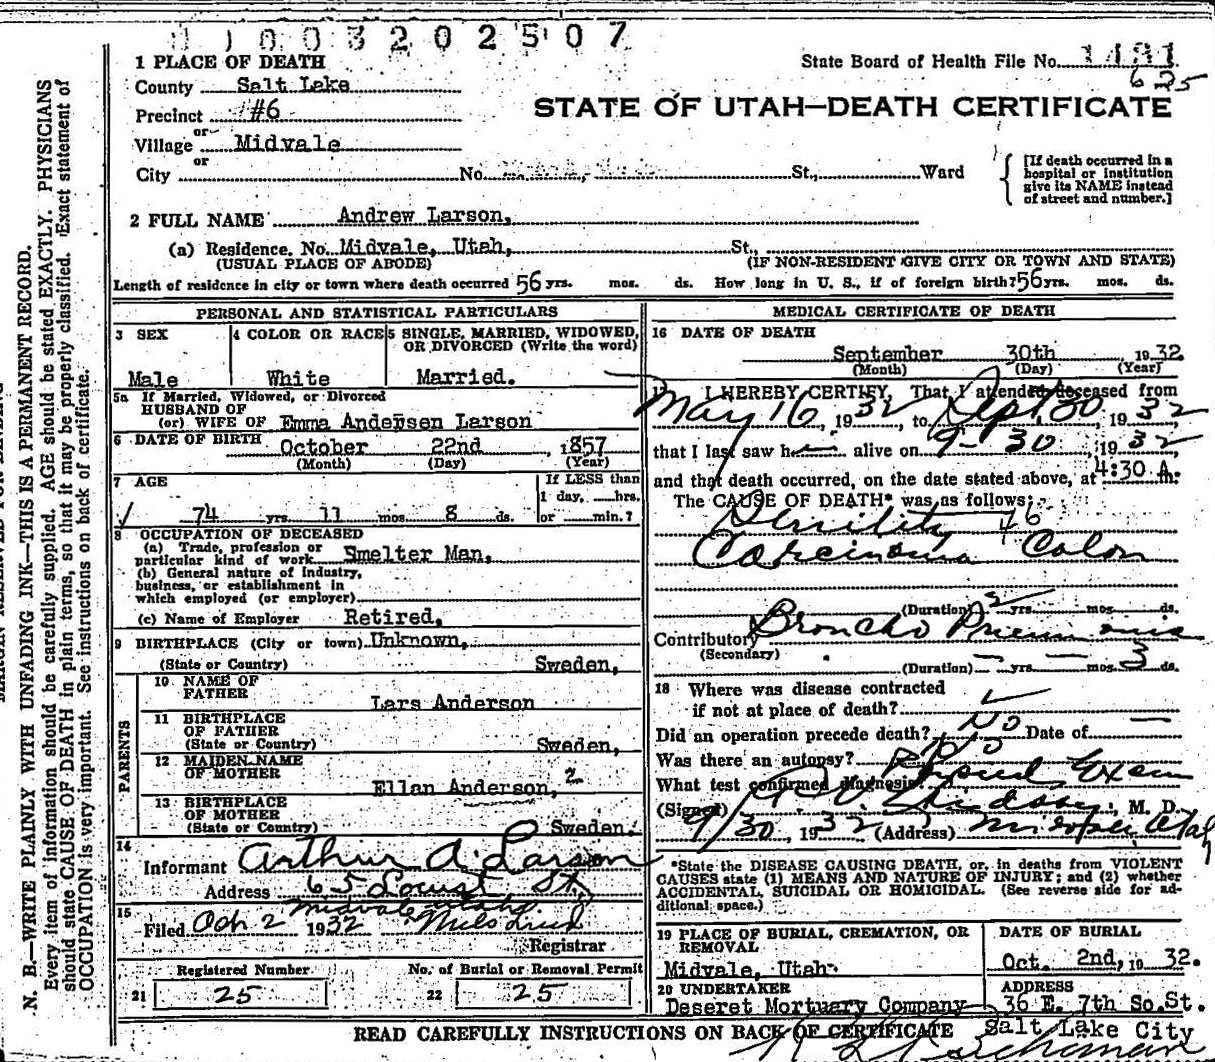 1 1 0 0 3 2 0 2 5 0 7
1 PLACE OF DEATH
County Salt Lake
Precinct #6
or
Village Midvale
or
City No. St., Ward
State Board of Health File No. 1491
625
STATE OF UTAH—DEATH CERTIFICATE
[If death occurred in a
hospital or institution
give its NAME instead
of street and number.]
2 FULL NAME Andrew Larson,
(a) Residence. No. Midvale, Utah, St.,
(USUAL PLACE OF ABODE) (IF NON-RESIDENT GIVE CITY OR TOWN AND STATE)
Length of residence in city or town where death occurred 56 yrs. mos. ds. How long in U. S., if of foreign birth? 56 yrs. mos. ds.
PERSONAL AND STATISTICAL PARTICULARS
3 SEX
Male
4 COLOR OR RACE
White
5 SINGLE, MARRIED, WIDOWED,
OR DIVORCED (Write the word)
Married.
5a If Married, Widowed, or Divorced
HUSBAND OF
(or) WIFE OF Emma Andersen Larson
6 DATE OF BIRTH October 22nd , 1857
(Month) (Day) (Year)
7 AGE
74 yrs. 11 mos. 8 ds.
If LESS than
1 day, hrs.
or min.?
8 OCCUPATION OF DECEASED
(a) Trade, profession or
particular kind of work Smelter Man,
(b) General nature of industry,
business, or establishment in
which employed (or employer)
(c) Name of Employer Retired,
9 BIRTHPLACE (City or town) Unknown,
(State or Country) Sweden,
PARENTS
10 NAME OF
FATHER
Lars Anderson
11 BIRTHPLACE
OF FATHER
(State or Country) Sweden,
12 MAIDEN NAME
OF MOTHER
Ellan Anderson, 2
13 BIRTHPLACE
OF MOTHER
(State or Country) Sweden.
14
Informant Arthur A. Larson
Address 65 Locust St.
Midvale Utah
15
Filed Oct 2 1932 Nils Lind
Registrar
Registered Number
21 25
No. of Burial or Removal Permit
22 25
MEDICAL CERTIFICATE OF DEATH
16 DATE OF DEATH
September 30th 1932
(Month) (Day) (Year)
17 I HEREBY CERTIFY, That I attended deceased from
May 16, 1932, to Sept 30, 1932
that I last saw h alive on 9-30, 1932
and that death occurred, on the date stated above, at 4:30 A. m.
The CAUSE OF DEATH* was as follows:
Senility 46
Carcinoma Colon
(Duration) 2 yrs. mos. ds.
Contributory Broncho Pneumonia
(Secondary)
(Duration) — yrs. — mos. 3 ds.
18 Where was disease contracted
if not at place of death?
Did an operation precede death? No Date of —
Was there an autopsy? No
What test confirmed diagnosis? Physical Exam
(Signed) Lindsay, M. D.
9/30, 1932 (Address) Midvale Utah
*State the DISEASE CAUSING DEATH, or, in deaths from VIOLENT
CAUSES state (1) MEANS AND NATURE OF INJURY; and (2) whether
ACCIDENTAL, SUICIDAL OR HOMICIDAL. (See reverse side for ad-
ditional space.)
19 PLACE OF BURIAL, CREMATION, OR
REMOVAL
Midvale, Utah
DATE OF BURIAL
Oct. 2nd, 1932.
20 UNDERTAKER
Deseret Mortuary Company
ADDRESS
36 E. 7th So. St.
Salt Lake City
READ CAREFULLY INSTRUCTIONS ON BACK OF CERTIFICATE
N. B.—WRITE PLAINLY WITH UNFADING INK—THIS IS A PERMANENT RECORD.
Every item of information should be carefully supplied. AGE should be stated EXACTLY. PHYSICIANS
should state CAUSE OF DEATH in plain terms, so that it may be properly classified. Exact statement of
OCCUPATION is very important. See instructions on back of certificate.